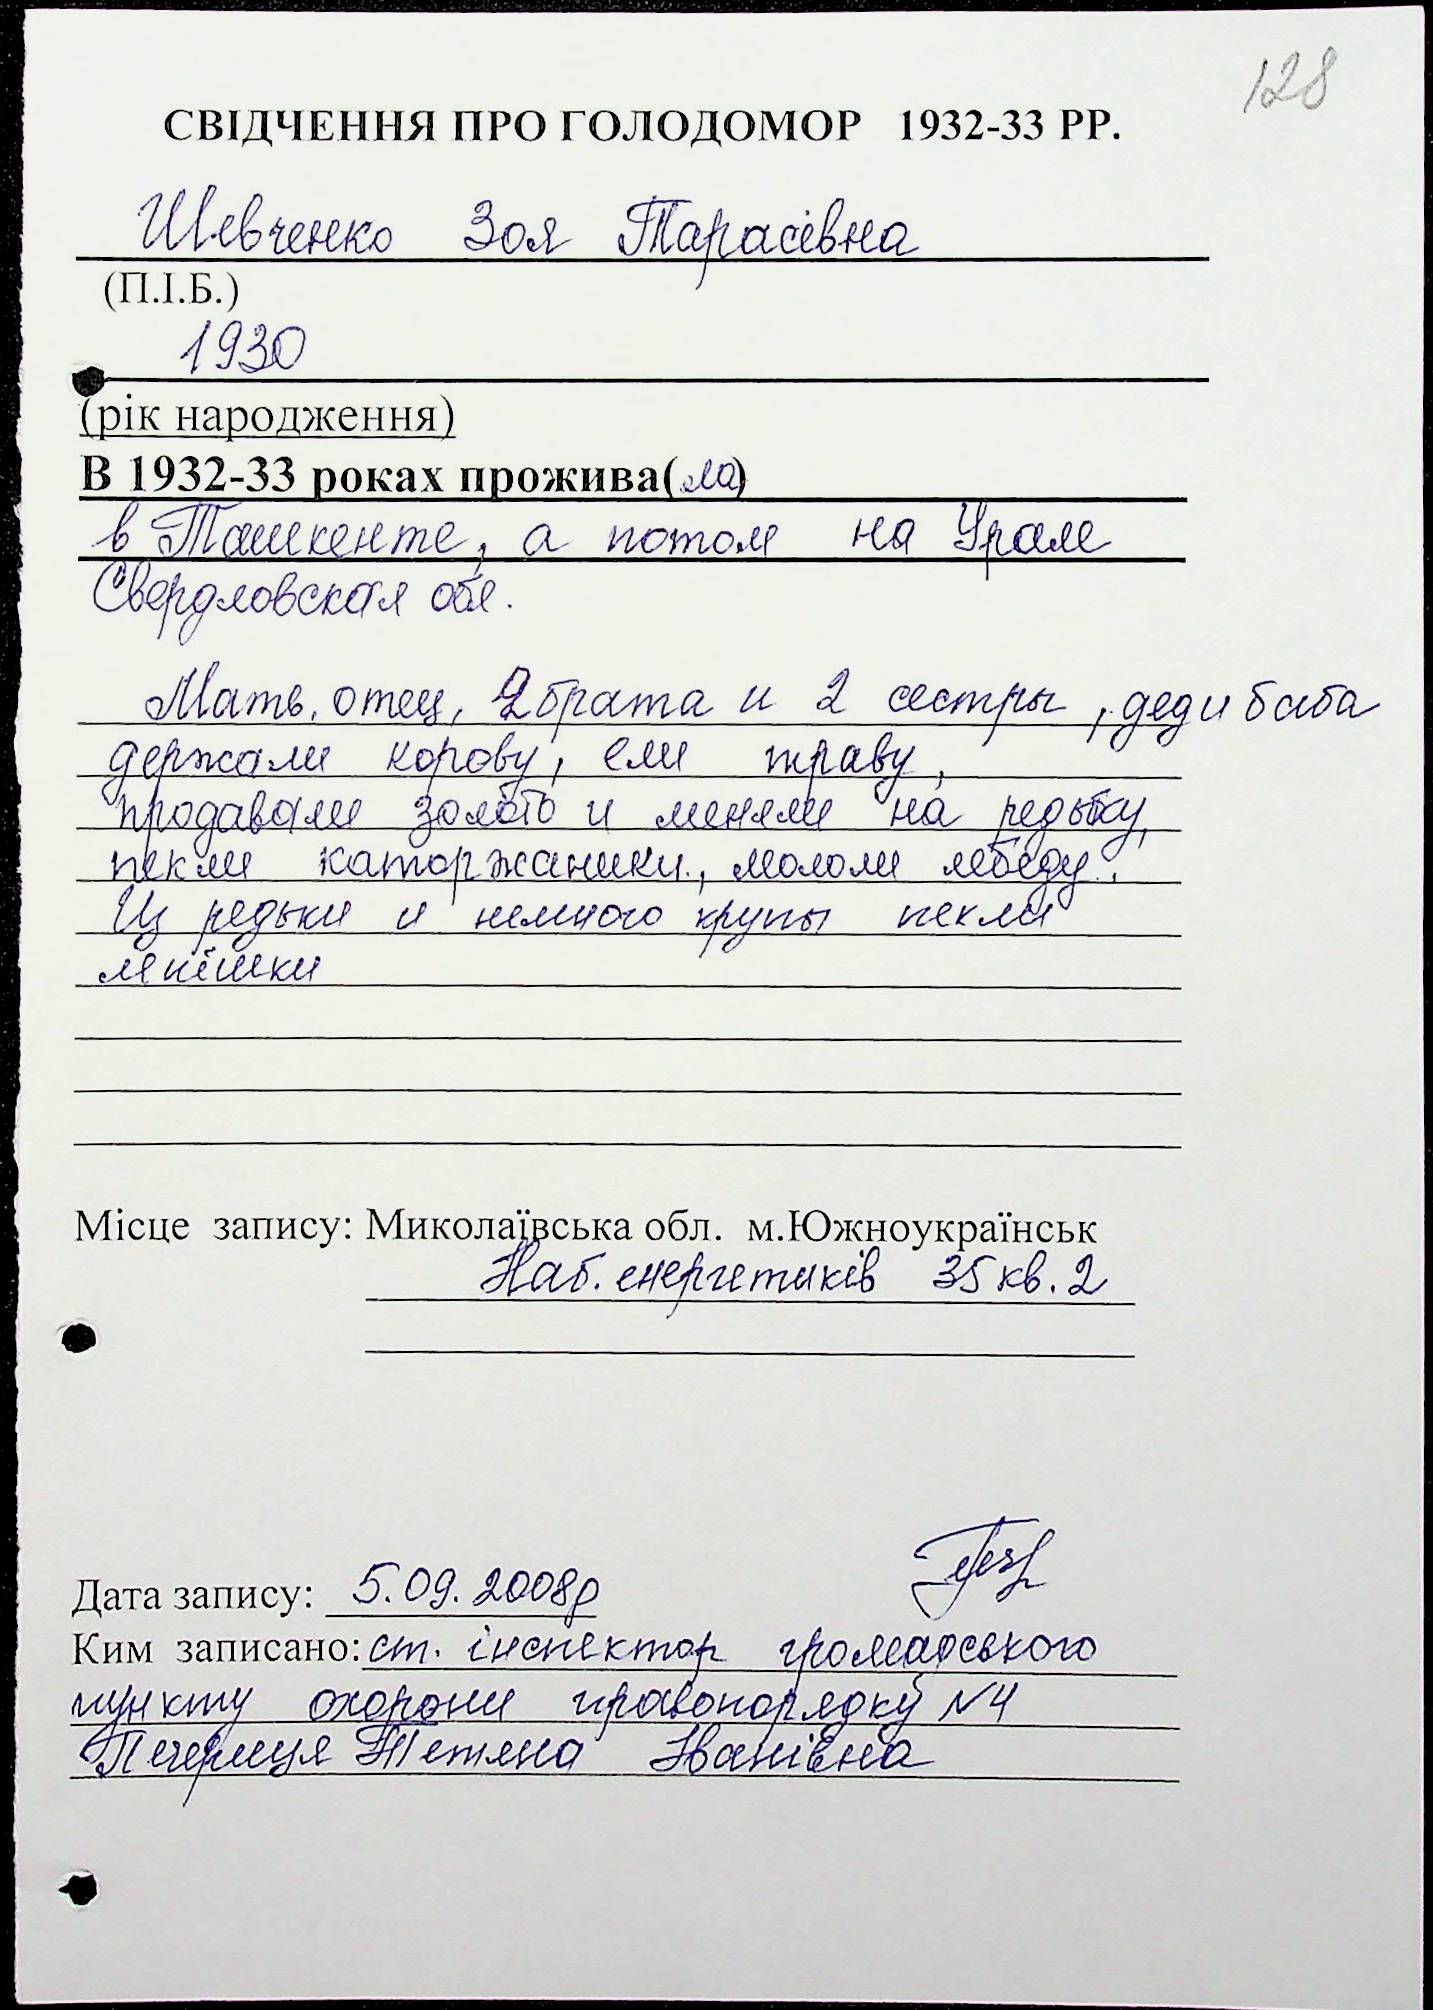 128
СВІДЧЕННЯ ПРО ГОЛОДОМОР 1932-33 РР.
Шевченко Зоя Тарасівна
(П.І.Б.)
1930
(рік народження)
В 1932-33 роках прожива(ла)
в Ташкенте, а потом на Урале
Свердловская обл.
Мать, отец, 2 брата и 2 сестры, дед и баба
держали корову, ели траву,
продавали золото и меняли на редьку,
пекли каторжаники, мололи лебеду.
Из редьки и немного крупы пекли
лепёшки
Місце запису: Миколаївська обл. м.Южноукраїнськ
Наб. енергетиків 35 кв. 2
Дата запису: 5.09.2008р
Ким записано: ст. інспектор громадського
пункту охорони правопорядку №4
Печериця Тетяна Іванівна